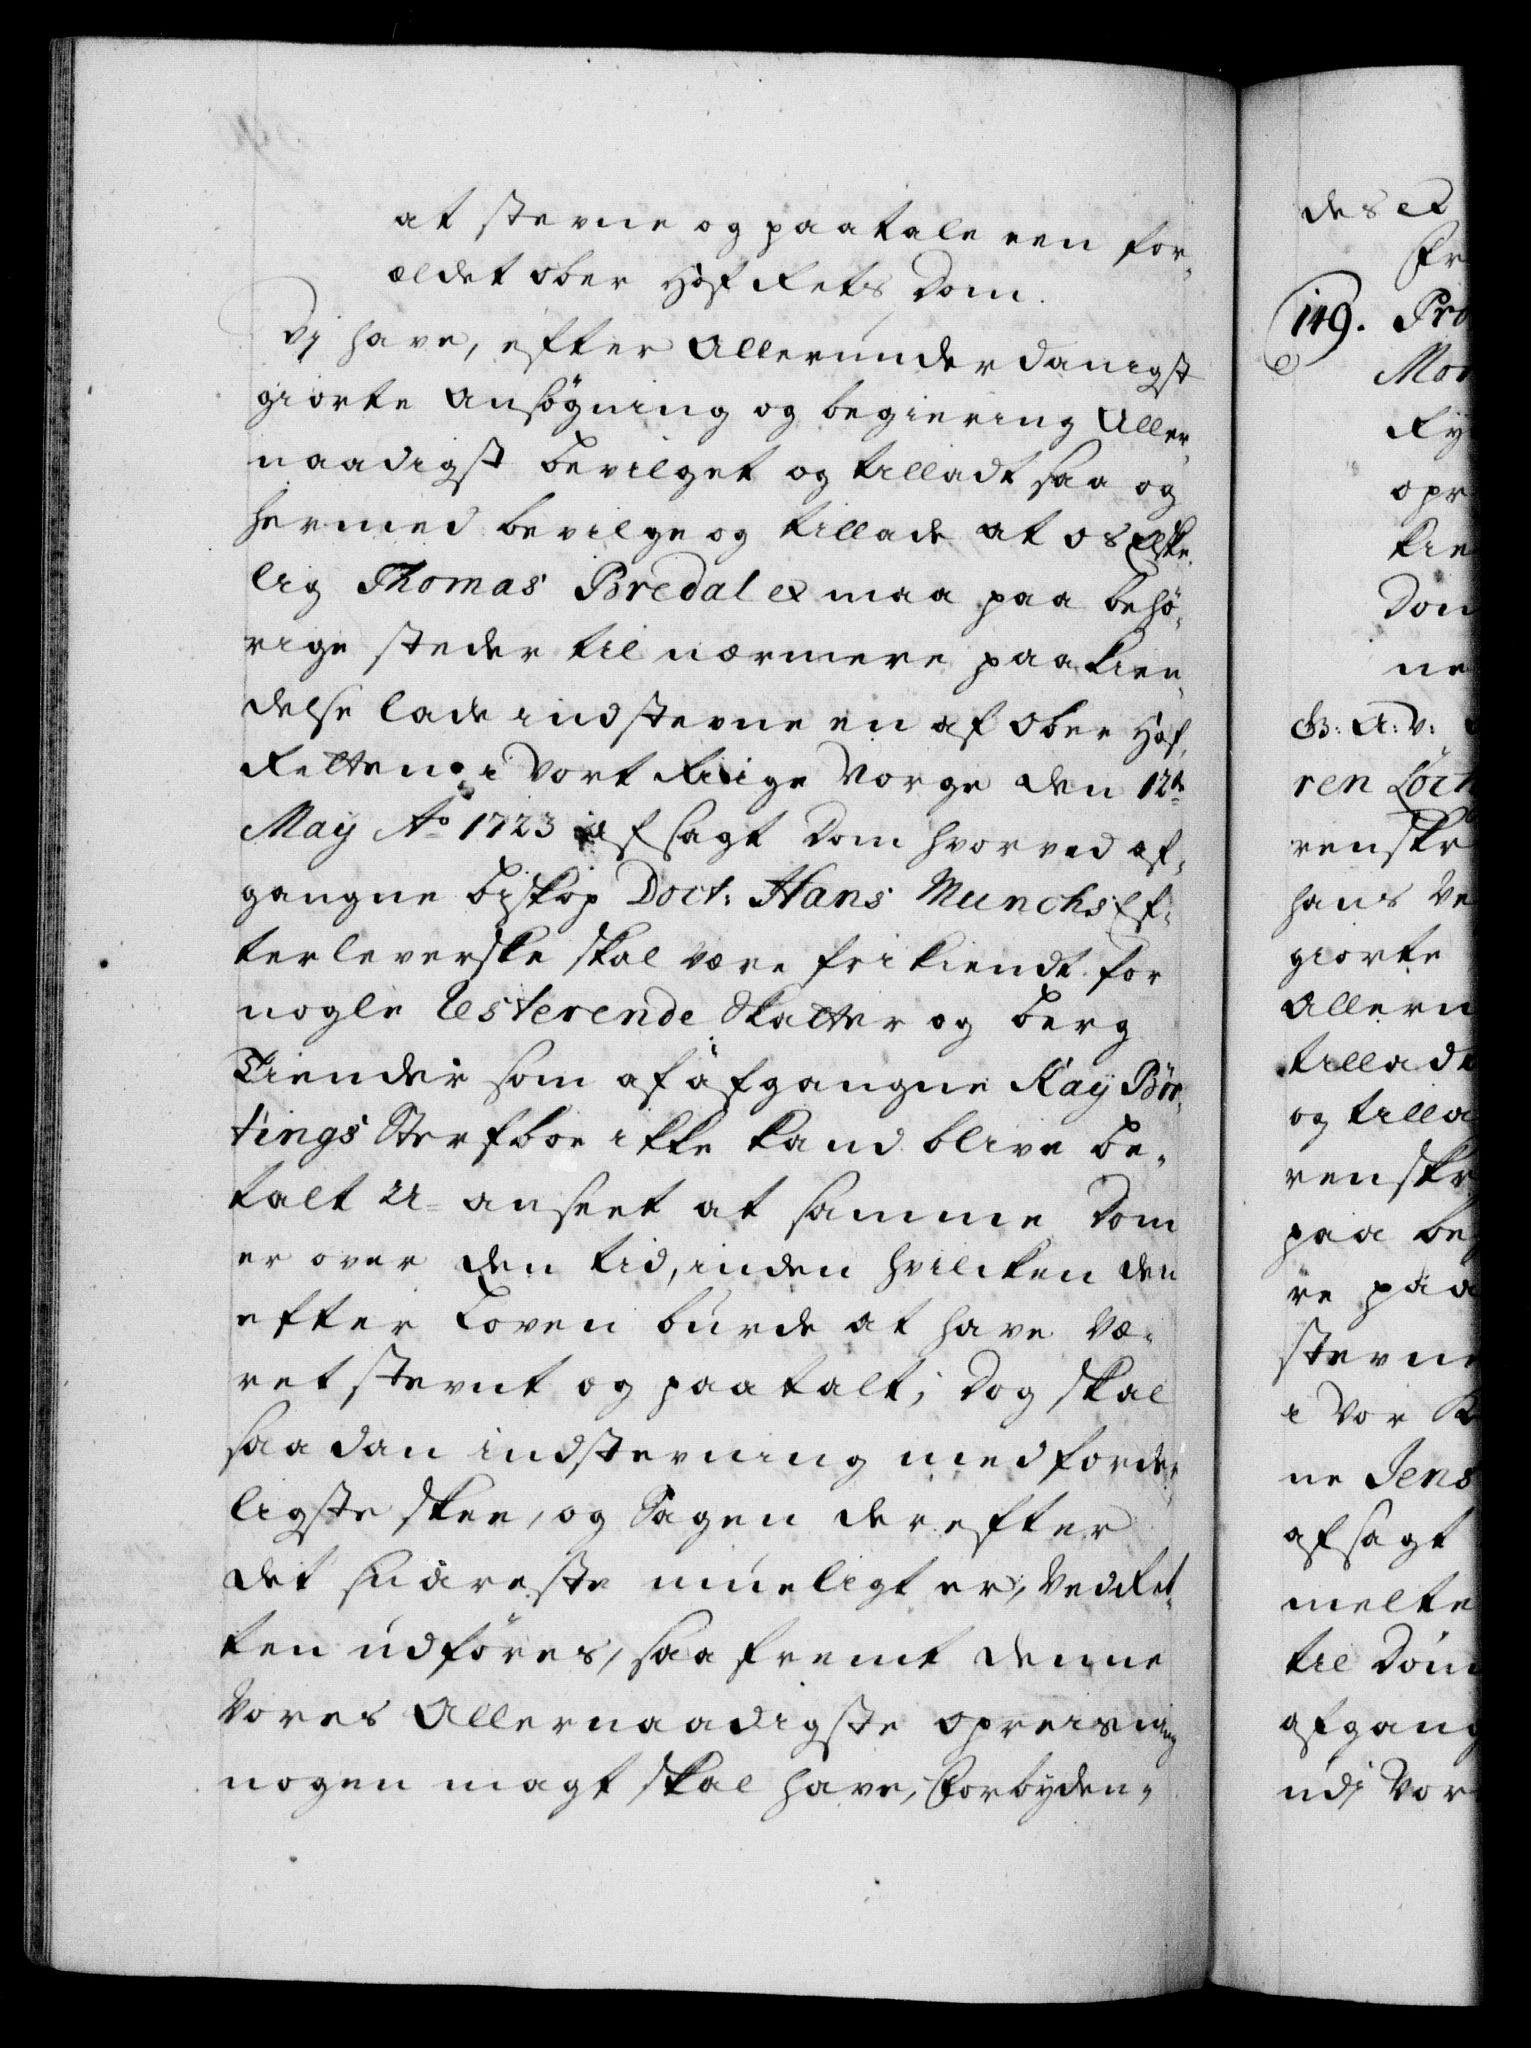 at stevne og paatale een for-
ældet Ober Hof Rets Dom.
Vj have, efter Allerunderdanigst
giorte Ansögning og begiering Aller-
naadigst bevilget og tilladt saa og
hermed bevilge og tillade at os Elske-
lig Thomas Bredal ec maa paa behö-
rige steder til nærmere paakien-
delse lade indstevne en af Ober Hof-
Retten i Vort Riige Norge den 12te
Maij Ao 1723 afsagt Dom hvorved af-
gangne Biskop Doct: Hans Munchs Ef-
terleverske skal være frikiendt for
nogle Resterende Skatter og Berg
Tiender som af afgangne Kay Bör-
tings Sterfboe ikke kand blive be-
talt U-anseet at samme Dom
er over den tid, inden hvilcken den
efter Loven burde at have væ-
ret stevnt og paatalt; Dog skal
saadan indstevning med forder-
ligste skee, og Sagen derefter
det snareste mueligt er, ved Ret-
ten udföres, saa fremt denne
Vores Allernaadigste opreisning
nogen magt skal have, Forbyden-
des ec
Fr
149. Pro
Mon
Ry
opr
kie
Dom
ne
G: A: V:
ren Lörch
renskr
hans Ve
giorte
Allern
tilladt
og tilla
renskr
paa be
re paa
stevne
i Vor K
ne Jens
afsagt
melte
til Döm
afgang
udj Vor